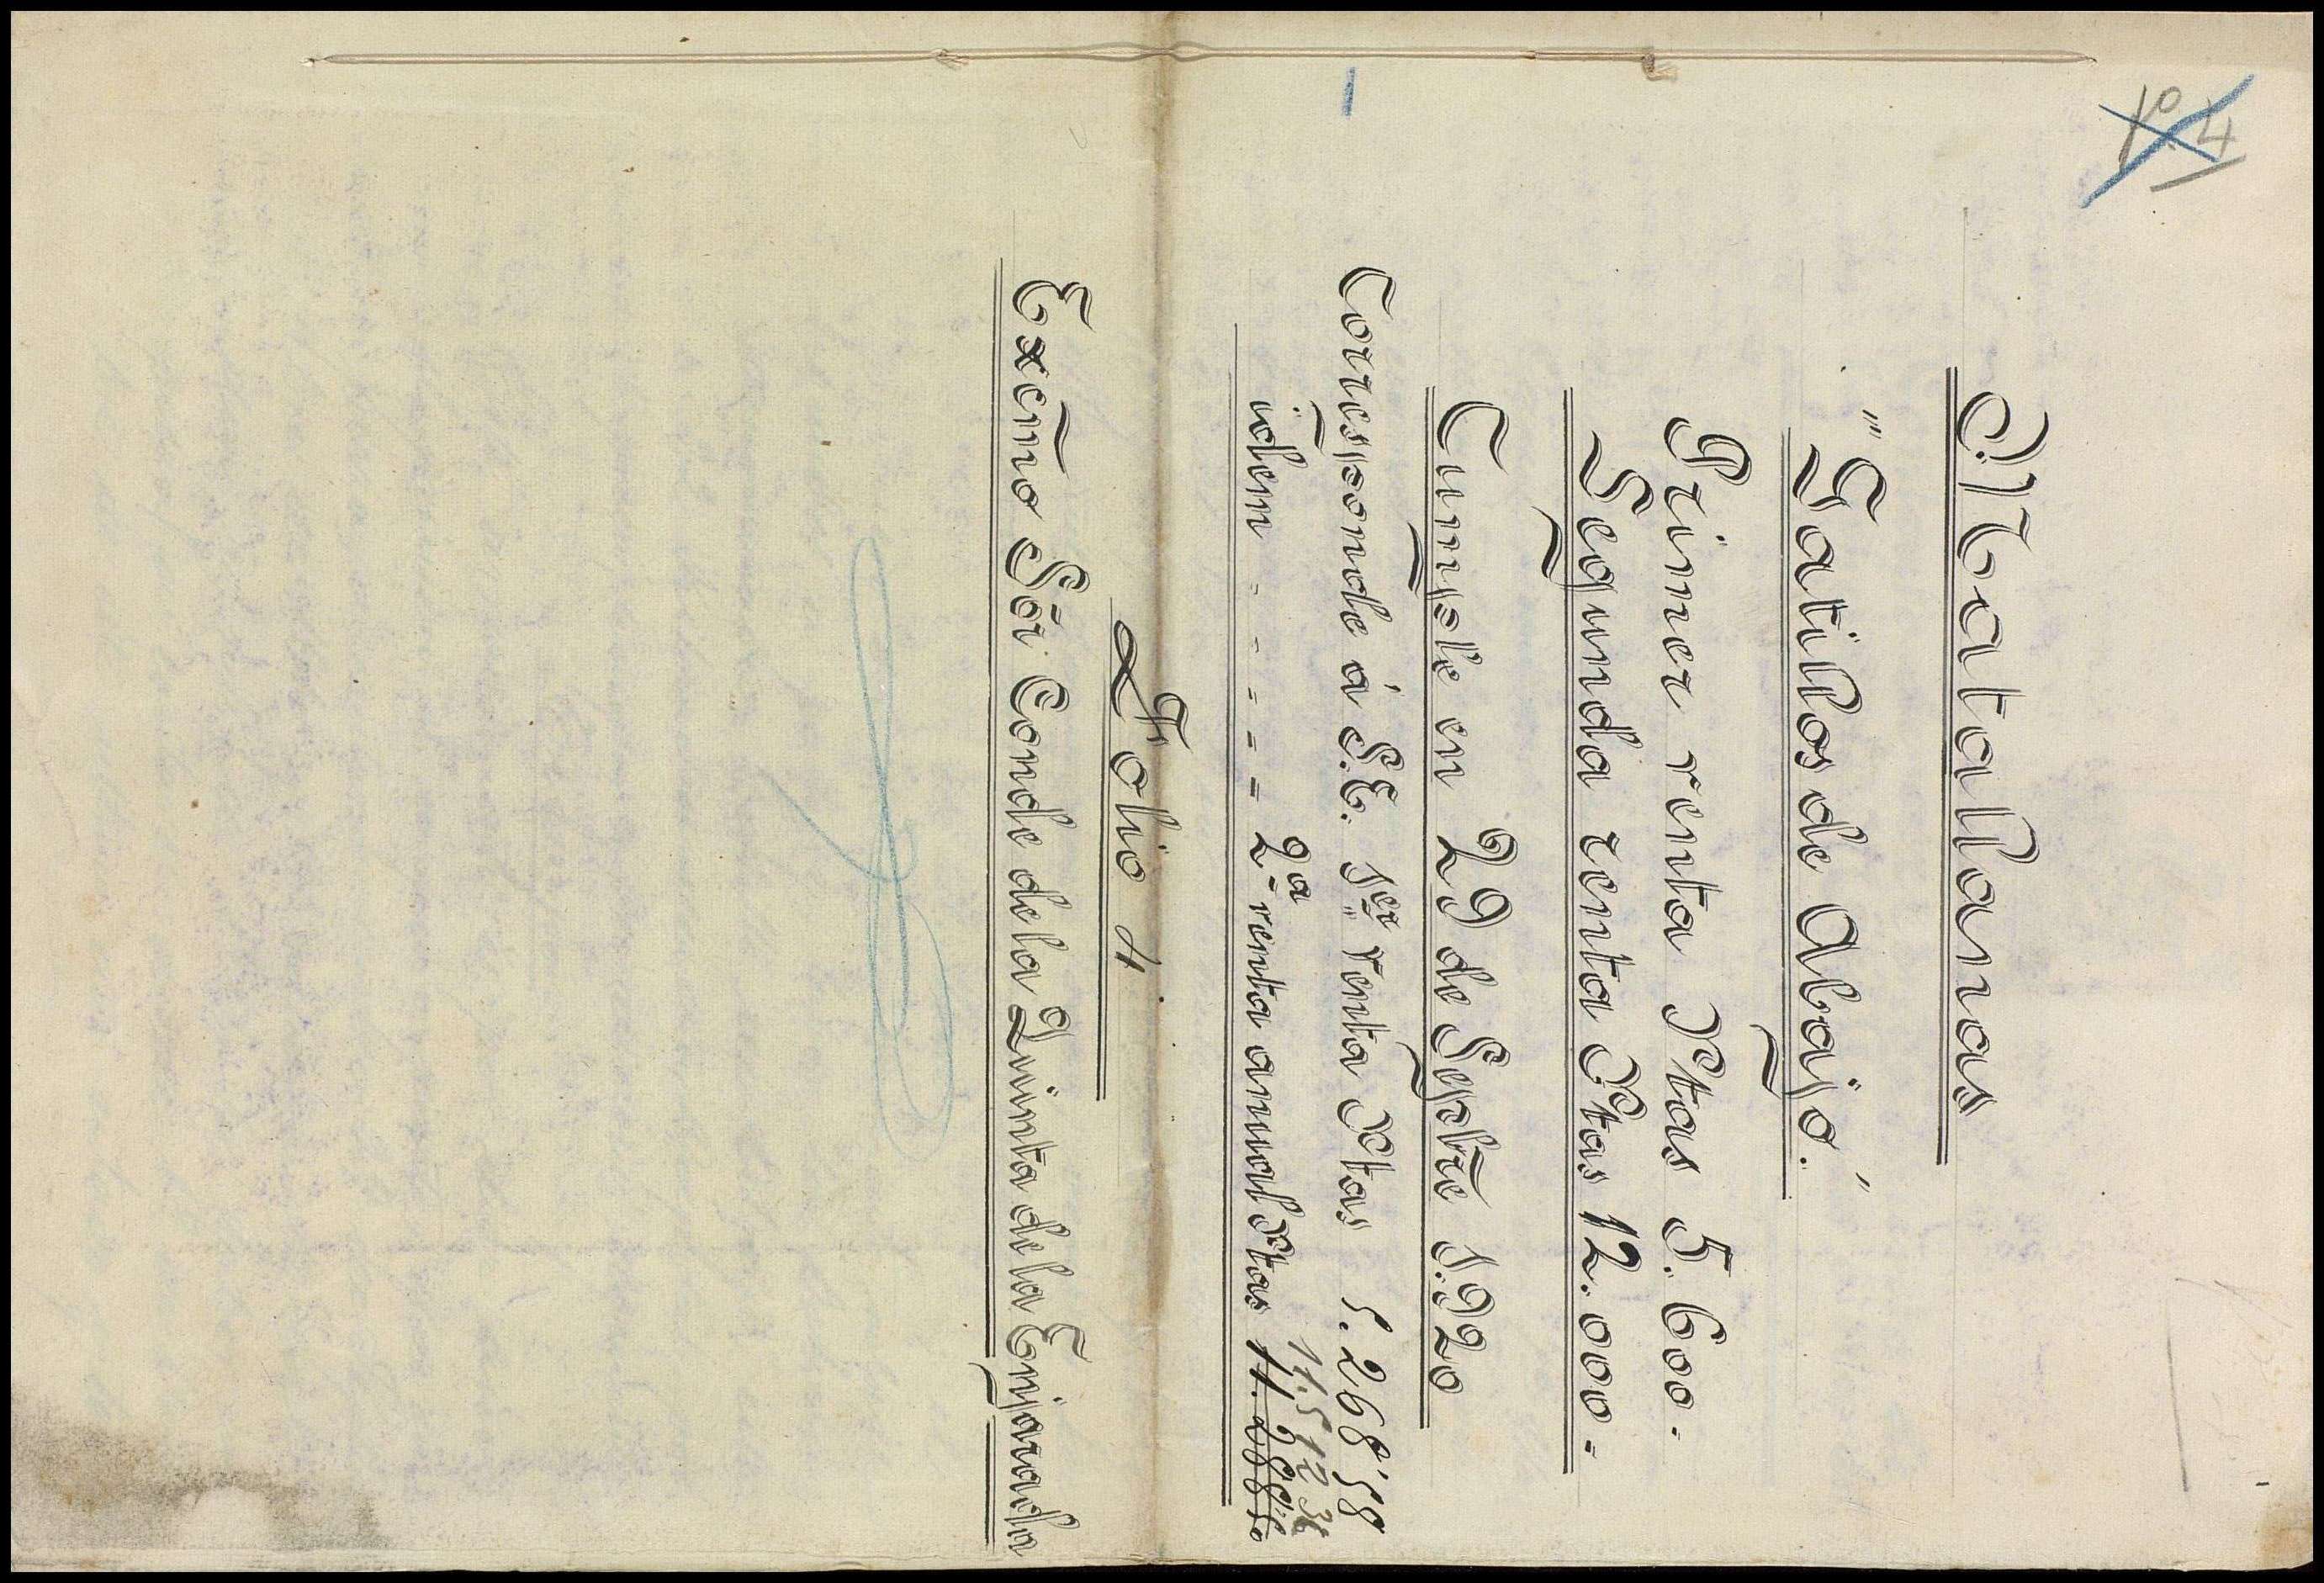 Nº 4
Matallanas
"Gatillos de Abajo."
Primer renta Ptas 5.600.=
Segunda renta Ptas 12.000=
Cumple en 29 de Sepbre 1.920
Corresponde á S.E. 1er renta Ptas 5.268'58
11.512 36
idem = = = = = 2ª renta anual Ptas
Folio 4
Excmo Sör Conde de la Quinta de la Enjarada